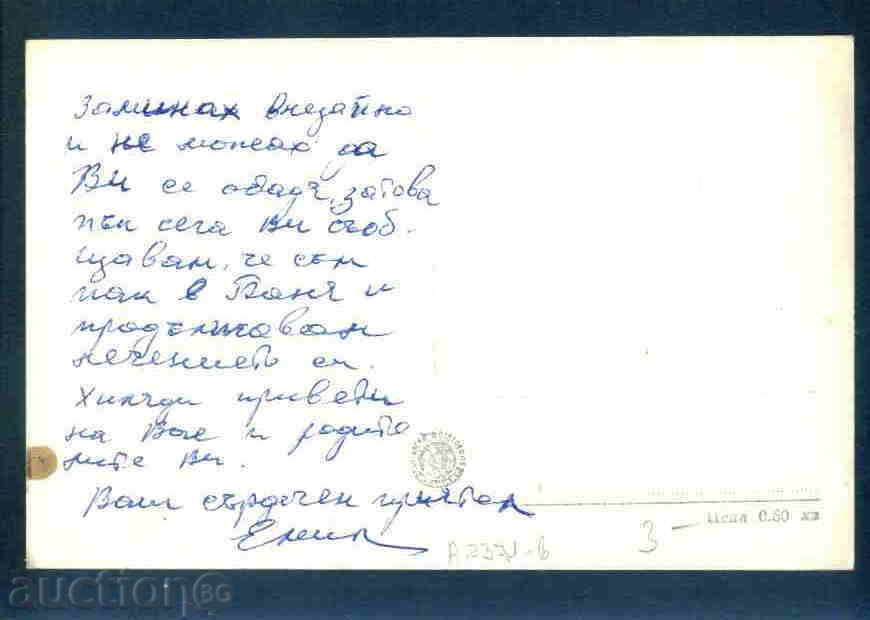 Заминах внезапно
и не можах да
Ви се обадя, затова
пък сега Ви съоб-
щавам, че съм
пак в Баня и
продължавам
лечението си.
Хиляди привети
на Вас и родите
лите Ви.
Ваш сърдечен приятел
Емил
А 2371-в
3 — Цена 0.60 лв
auction BG